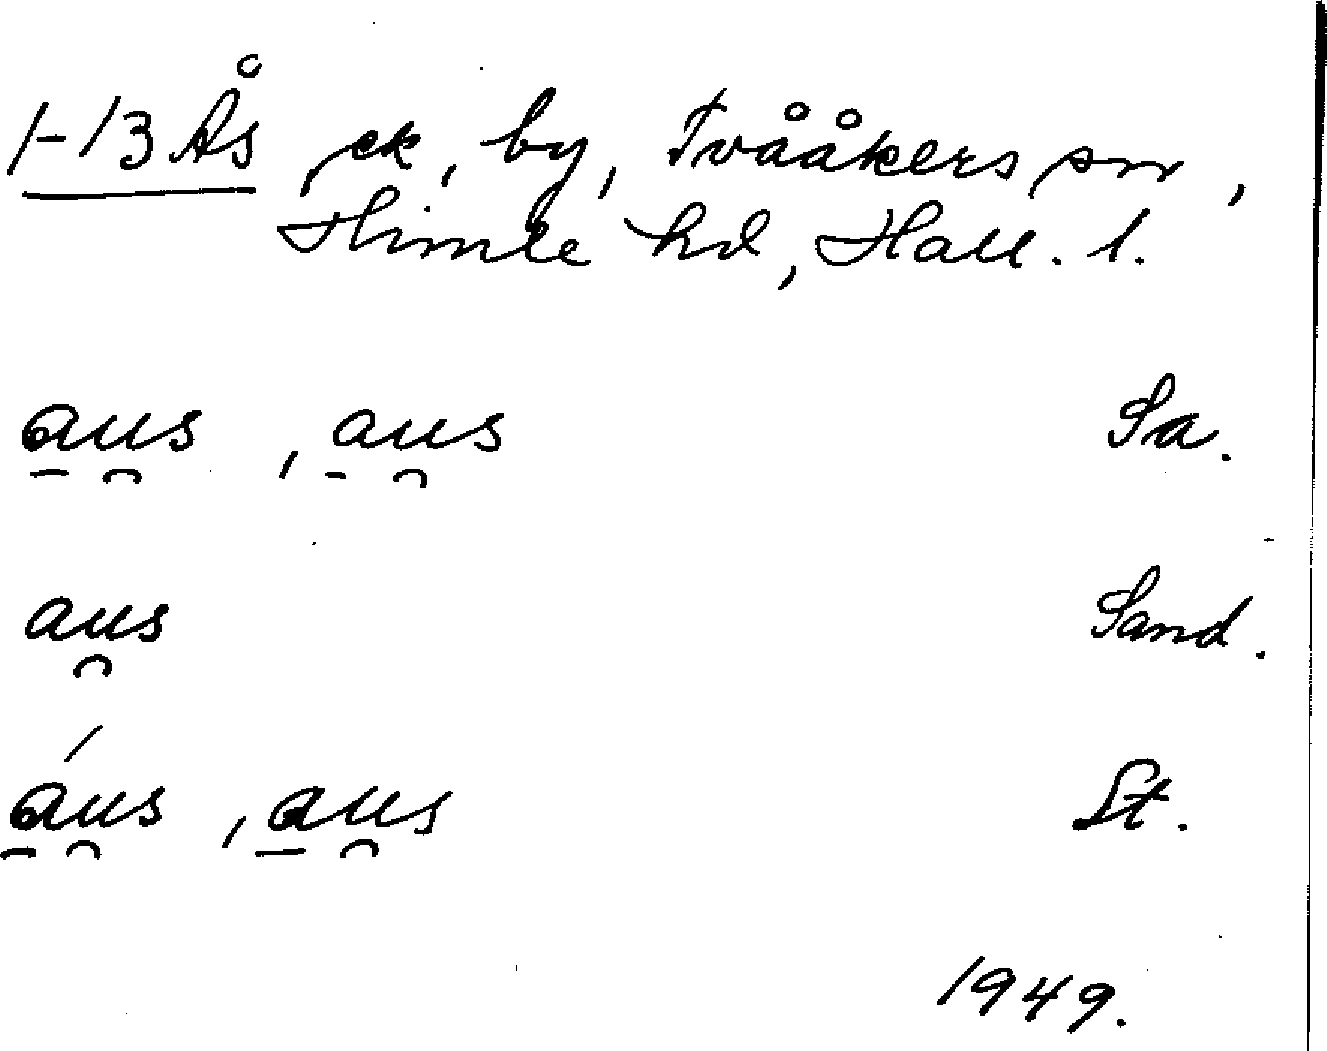 1-13 Ås, ek, by, Tvååkers sn,
Himle hd, Hall. l.
a̠u̯s, a̠u̯s Sa.
au̯s Sand.
á̠u̯s, a̠u̯s St.
1949.